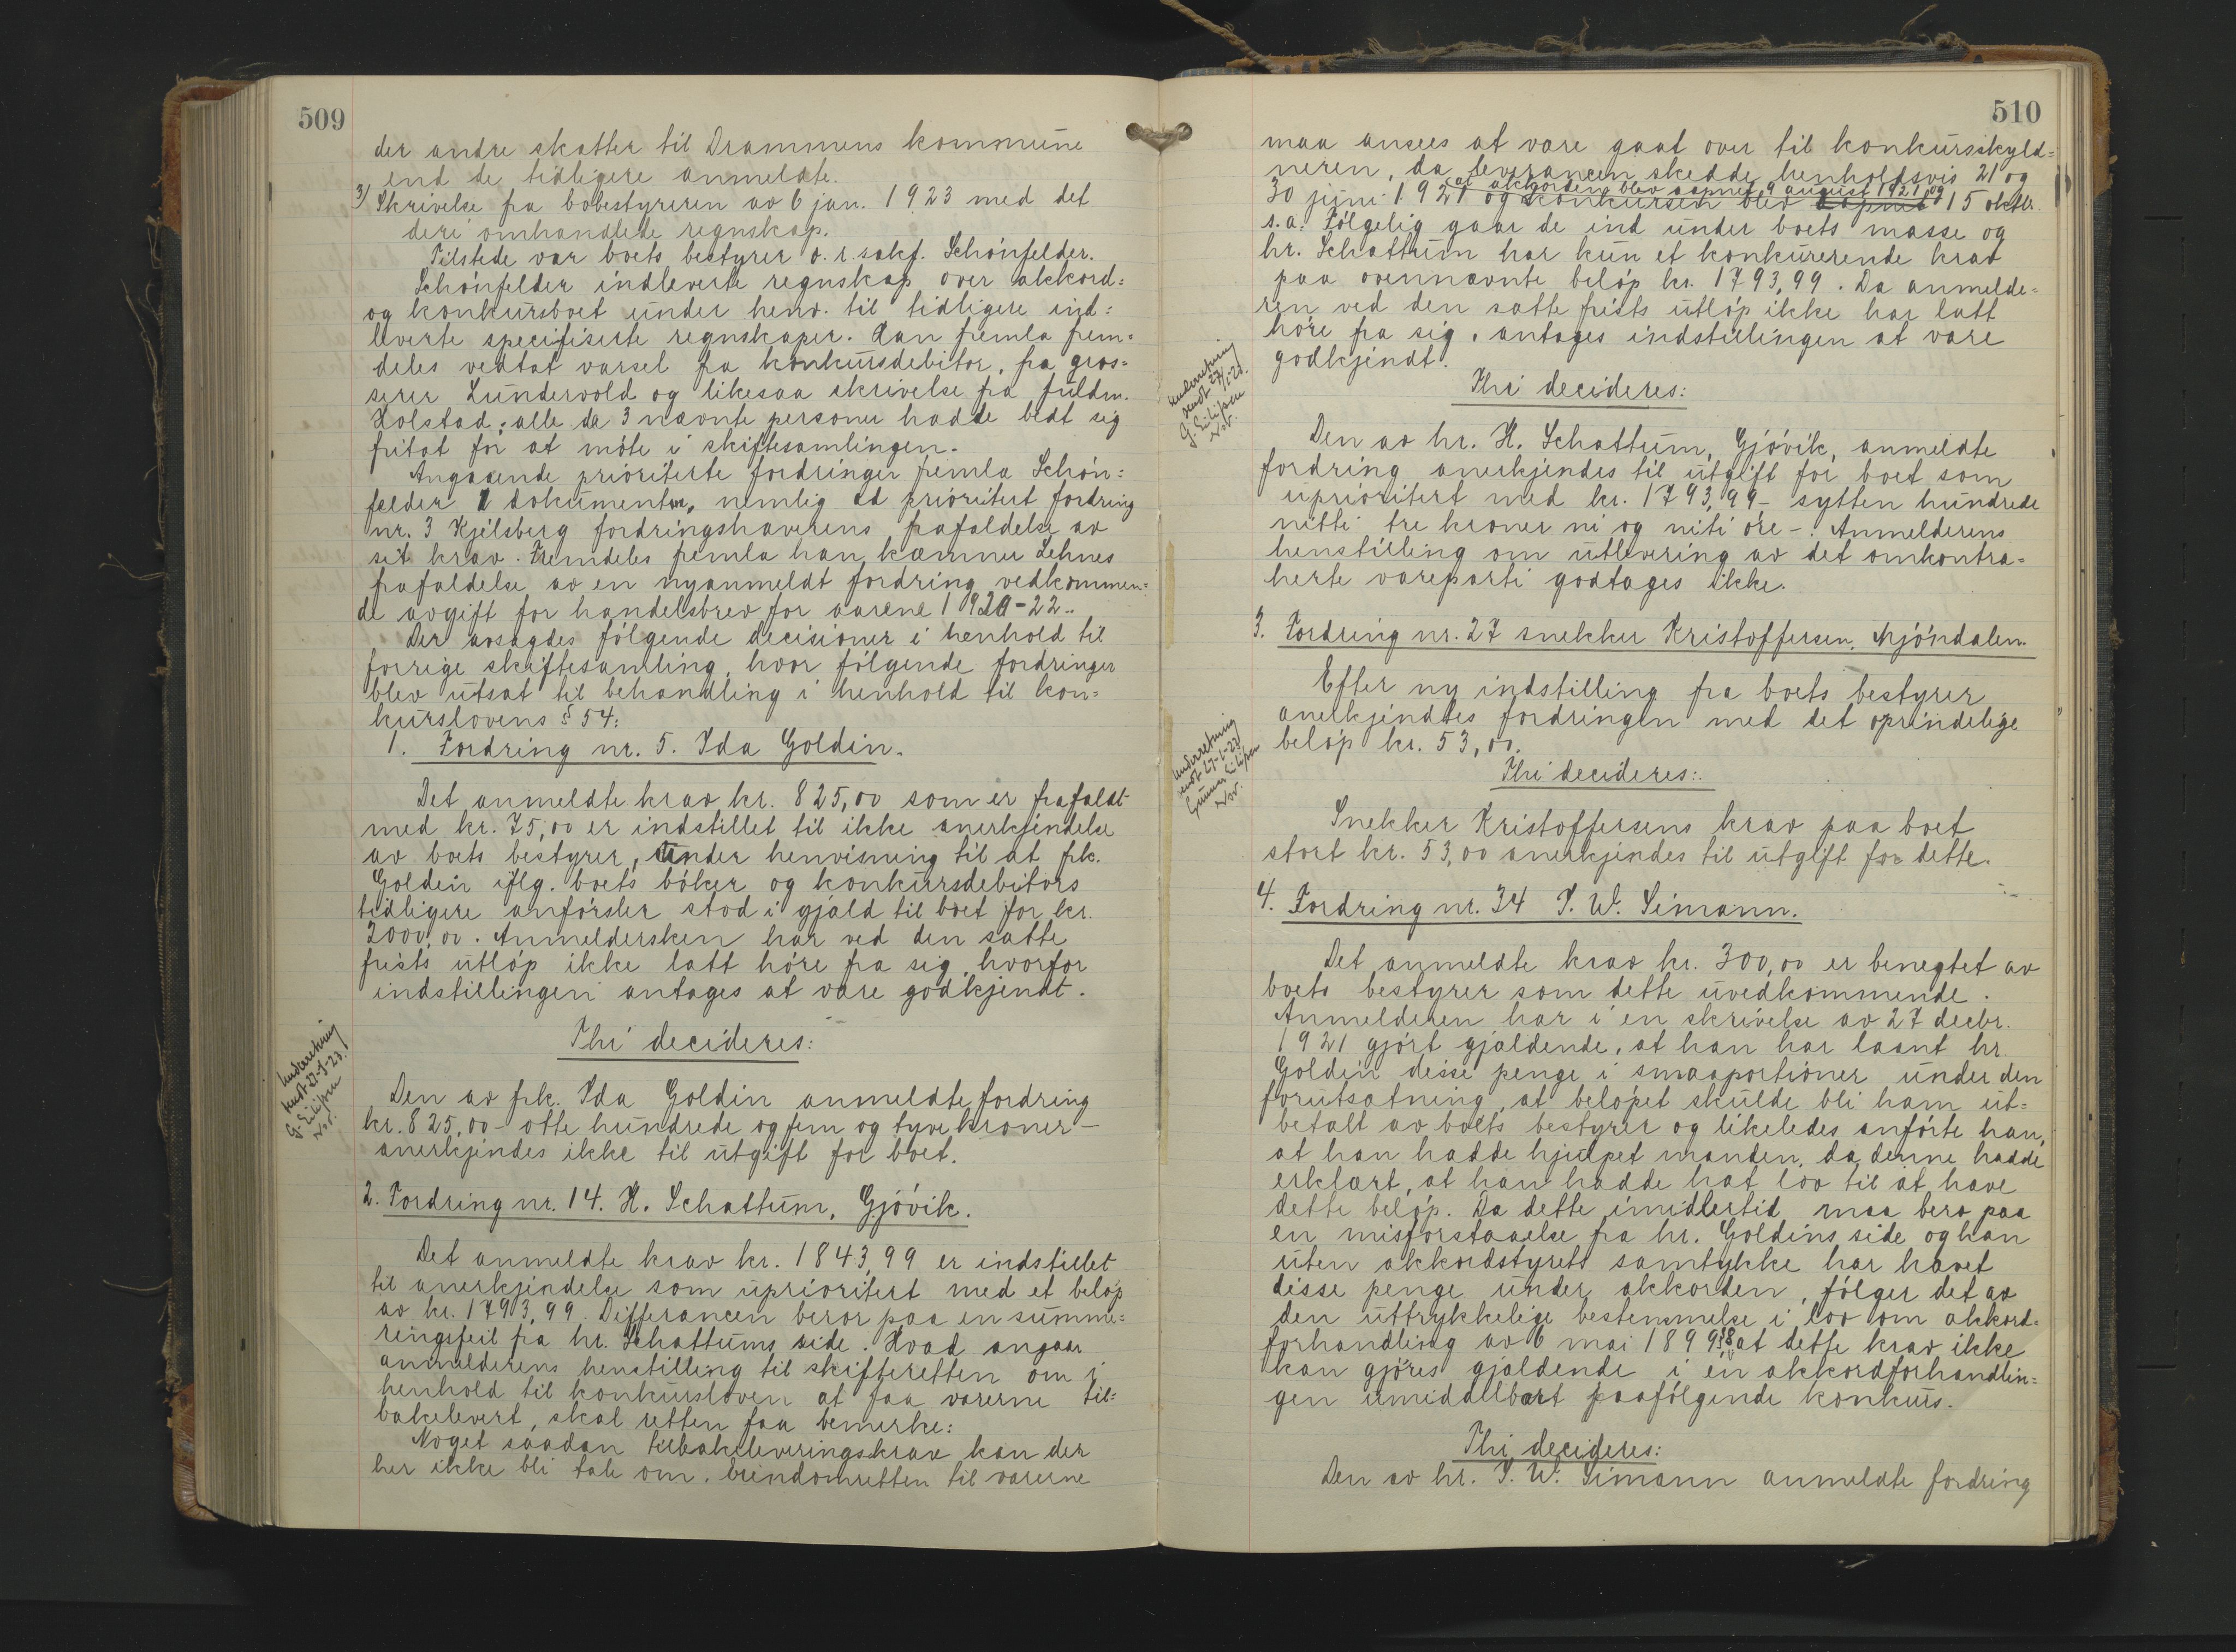 509
der andre skatter til Drammens kommune
end de tidligere anmeldte.
3) Skrivelse fra bobestyreren av 6 jan. 1923 med det
deri omhandlede regnskap.
Tilstede var boets bestyrer o. r. sakf. Schönfelder.
Schönfelder indleverte regnskap over akkord=
og konkursboet under henv. til tidligere ind=
leverte specifiserte regnskaper. Han fremla frem=
deles vedtat varsel fra konkursdebitor, fra gros=
serer Lundervold og likesaa skrivelse fra fuldm.
Holstad; alle de 3 nævnte personer hadde bedt sig
fritat for at møte i skiftesamlingen.
Angaaende prioriterte fordringer fremla Schön=
felder dokumenter, nemlig ad prioritert fordring
nr. 3 Kjelsberg fordringshaverens frafaldelse av
sit krav. Fremdeles fremla han kæmner Lehnes
frafaldelse av en nyanmeldt fordring vedkommen=
de avgift for handelsbrev for aarene 1920-22.
Der avsagdes følgende decisioner i henhold til
forrige skiftesamling, hvor følgende fordringer
blev utsat til behandling i henhold til kon=
kurslovens § 54:
1. Fordring nr. 5. Ida Goldin.
Det anmeldte krav kr. 825,00 som er frafaldt
med kr. 75,00 er indstillet til ikke anerkjendelse
av boets bestyrer, under henvisning til at frk.
Goldin iflg. boets bøker og konkursdebitors
tidligere anførsler stod i gjæld til boet for kr.
2000,00. Anmeldersken har ved den satte
frists utløp ikke latt høre fra sig, hvorfor
indstillingen antages at være godkjendt.
Thi decideres:
Underretning
sendt 27-1-23.
G. Eilifsen
Nor.
Den av frk. Ida Goldin anmeldte fordring
kr. 825,00 - otte hundrede og fem og tyve kroner -
anerkjendes ikke til utgift for boet.
2. Fordring nr. 14. H. Schattum, Gjøvik.
Det anmeldte krav kr. 1843,99 er indstillet
til anerkjendelse som uprioritert med et beløp
av kr. 1793,99. Differancen beror paa en summe=
ringsfeil fra hr. Schattums side. Hvad angaar
anmelderens henstilling til skifteretten om i
henhold til konkursloven at faa varerne til=
bakelevert, skal retten faa bemerke:
Noget saadan tilbakeleveringskrav kan der
her ikke bli tale om. Eiendomsretten til varerne
510
maa ansees at være gaat over til konkursskyld=
neren, da leverancen skedde henholdsvis 21 og
at akkorden blev aapnet 9 august 1921 og
30 juni 1921 og konkursen blev aapnet 15 oktbr.
s.a. Følgelig gaar de ind under boets masse og
hr. Schattum har kun et konkurerende krav
paa ovennævnte beløp kr. 1793,99. Da anmelde=
ren ved den satte frists utløp ikke har latt
høre fra sig, antages indstillingen at være
godkjendt.
Underretning
sendt 27/1-23.
G. Eilifsen
Nor.
Thi decideres:
Den av hr. H. Schattum, Gjøvik, anmeldte
fordring anerkjendes til utgift for boet som
uprioritert med kr. 1793,99 - sytten hundrede
nitti tre kroner ni og niti øre -. Anmelderens
henstilling om utlevering av det omkontra=
herte vareparti godtages ikke.
3. Fordring nr. 27 snekker Kristoffersen, Mjøndalen.
Efter ny indstilling fra boets bestyrer
anerkjendtes fordringen med det oprindelige
beløp kr. 53,00.
Underretning
sendt 27-1-23
Gunnar Eilifsen
Nor.
Thi decideres:
Snekker Kristoffersens krav paa boet
stort kr. 53,00 anerkjendes til utgift for dette.
4. Fordring nr. 34 I. W. Simann.
Det anmeldte krav kr. 300,00 er benegtet av
boets bestyrer som dette uvedkommende.
Anmelderen har i en skrivelse av 27 decbr.
1921 gjort gjældende, at han har laant hr.
Goldin disse penge i smaaportioner under den
forutsætning, at beløpet skulde bli ham ut=
betalt av boets bestyrer og likeledes anførte han,
at han hadde hjulpet manden, da denne hadde
erklært, at han hadde hat lov til at have
dette beløp. Da dette imidlertid maa bero paa
en misforstaaelse fra hr. Goldins side og han
uten akkordstyrets samtykke har hævet
disse penge under akkorden, følger det av
den uttrykkelige bestemmelse i lov om akkord=
forhandling av 6 mai 1899 § 8 at dette krav ikke
kan gjøres gjældende i en akkordforhandlin=
gen umiddelbart paafølgende konkurs.
Thi decideres:
Den av hr. I. W. Simann anmeldte fordring